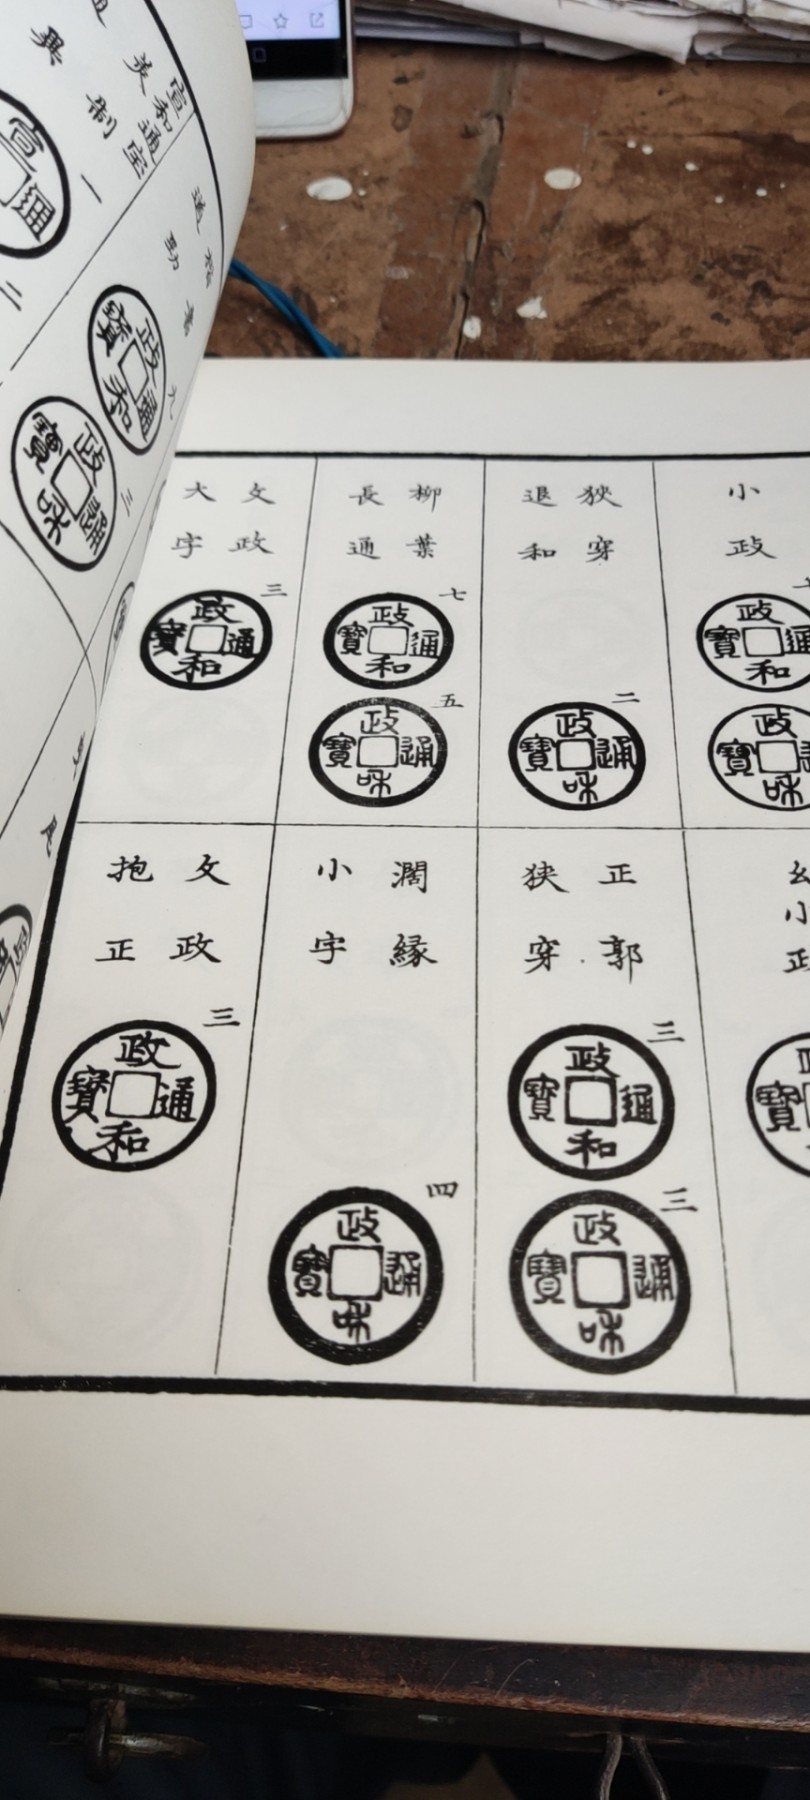 小政
政和通寶
政和
狹穿
退和
二
政和通寶
柳葉
長通
七
政和通寶
五
政和通寶
文政
大字
三
政和通寶
小
正郭
狹穿
三
政和通寶
三
政和通寶
濶縁
小字
四
政和通寶
文政
抱正
三
政和通寶
宣和通宝
一
二
九
政和通寶
三
政和通寶